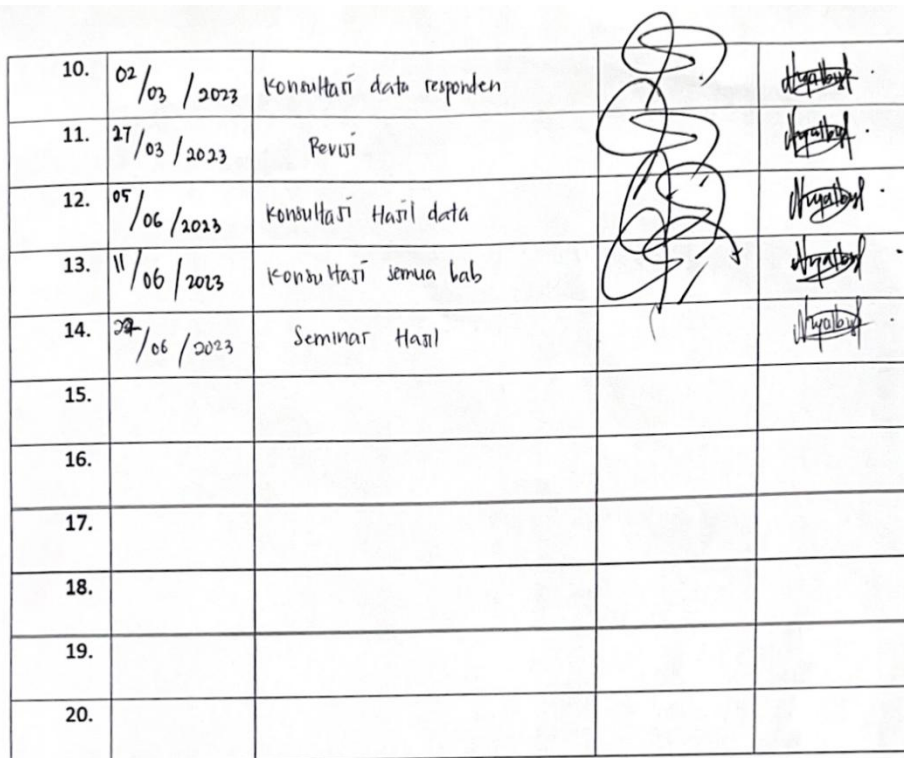 10. 02/03/2023 Konsultasi data responden
11. 27/03/2023 Revisi
12. 05/06/2023 Konsultasi Hasil data
13. 11/06/2023 Konsultasi semua bab
14. /06/2023 Seminar Hasil
15.
16.
17.
18.
19.
20.